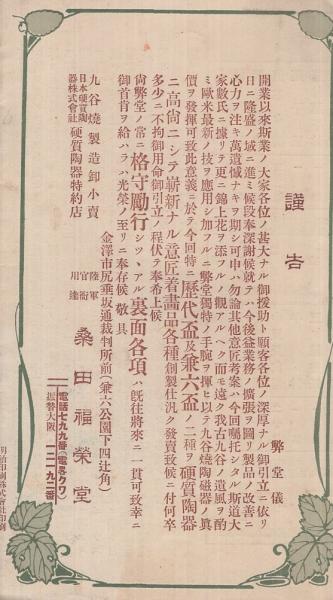 謹告
弊堂儀
開業以來斯業ノ大家各位ノ甚大ナル御援助ト顧客各位ノ深厚ナル御引立ニ依リ
日ニ隆盛ノ域ニ進ミ候段奉深謝候就テハ今後益業務ノ擴張ヲ圖リ製品ノ改善ニ
心力ヲ注キ萬遺憾ナキヲ期シ可申ハ勿論其他意匠考案ハ今回囑托シタル斯道大
家數氏ニ據リテ更ニ錦上花ヲ添フルノ觀アルヘク而モ遠ク我古九谷ノ遺風ヲ酌
ミ歐米最新ノ技ヲ應用シ加フルニ弊堂獨特ノ手腕ヲ揮ヒ以テ九谷燒陶磁器ノ眞
價ヲ發揮可致此意義ニ於テ今回特ニ歷代盃及兼六盃ノ二種ヲ硬質陶器
ニ高尙ニシテ嶄新ナル意匠着畫品各種創製仕汎ク發賣致候ニ付何卒
多少ニ不拘御用命御引立ノ程伏テ奉希上候
尙弊堂ノ常ニ格守勵行シツヽアル裏面各項ハ既往將來ニ一貫可致幸ニ
御首肯ヲ給ハラハ光榮ノ至リニ奉存候 敬具
金澤市尻垂坂通裁判所前(兼六公園下四辻角)
九谷燒製造卸小賣
日本硬質陶器株式會社 硬質陶器特約店
陸軍官衙 用達
桑田福榮堂
電話七九九番(電畧クワ)
振替大阪一二一九二番
明治印刷株式會社印刷